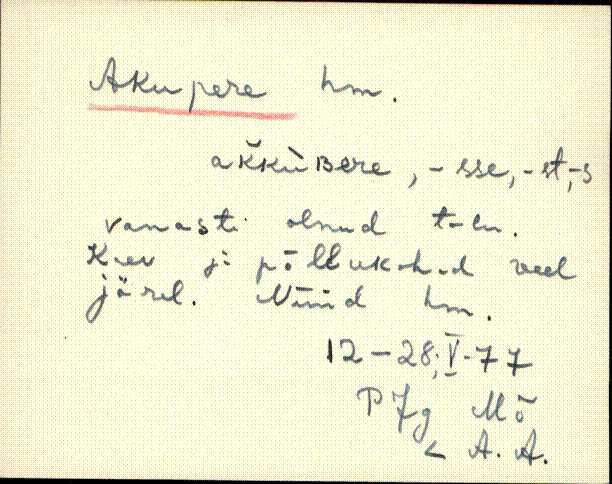 Akupere hm.
aǩkùBere, -sse, -st, -s
vanasti olnud talu.
Kaev ja põllukohad veel
järel. Nüüd hm.
12-28; V-77
PJg Mõ
< A. A.